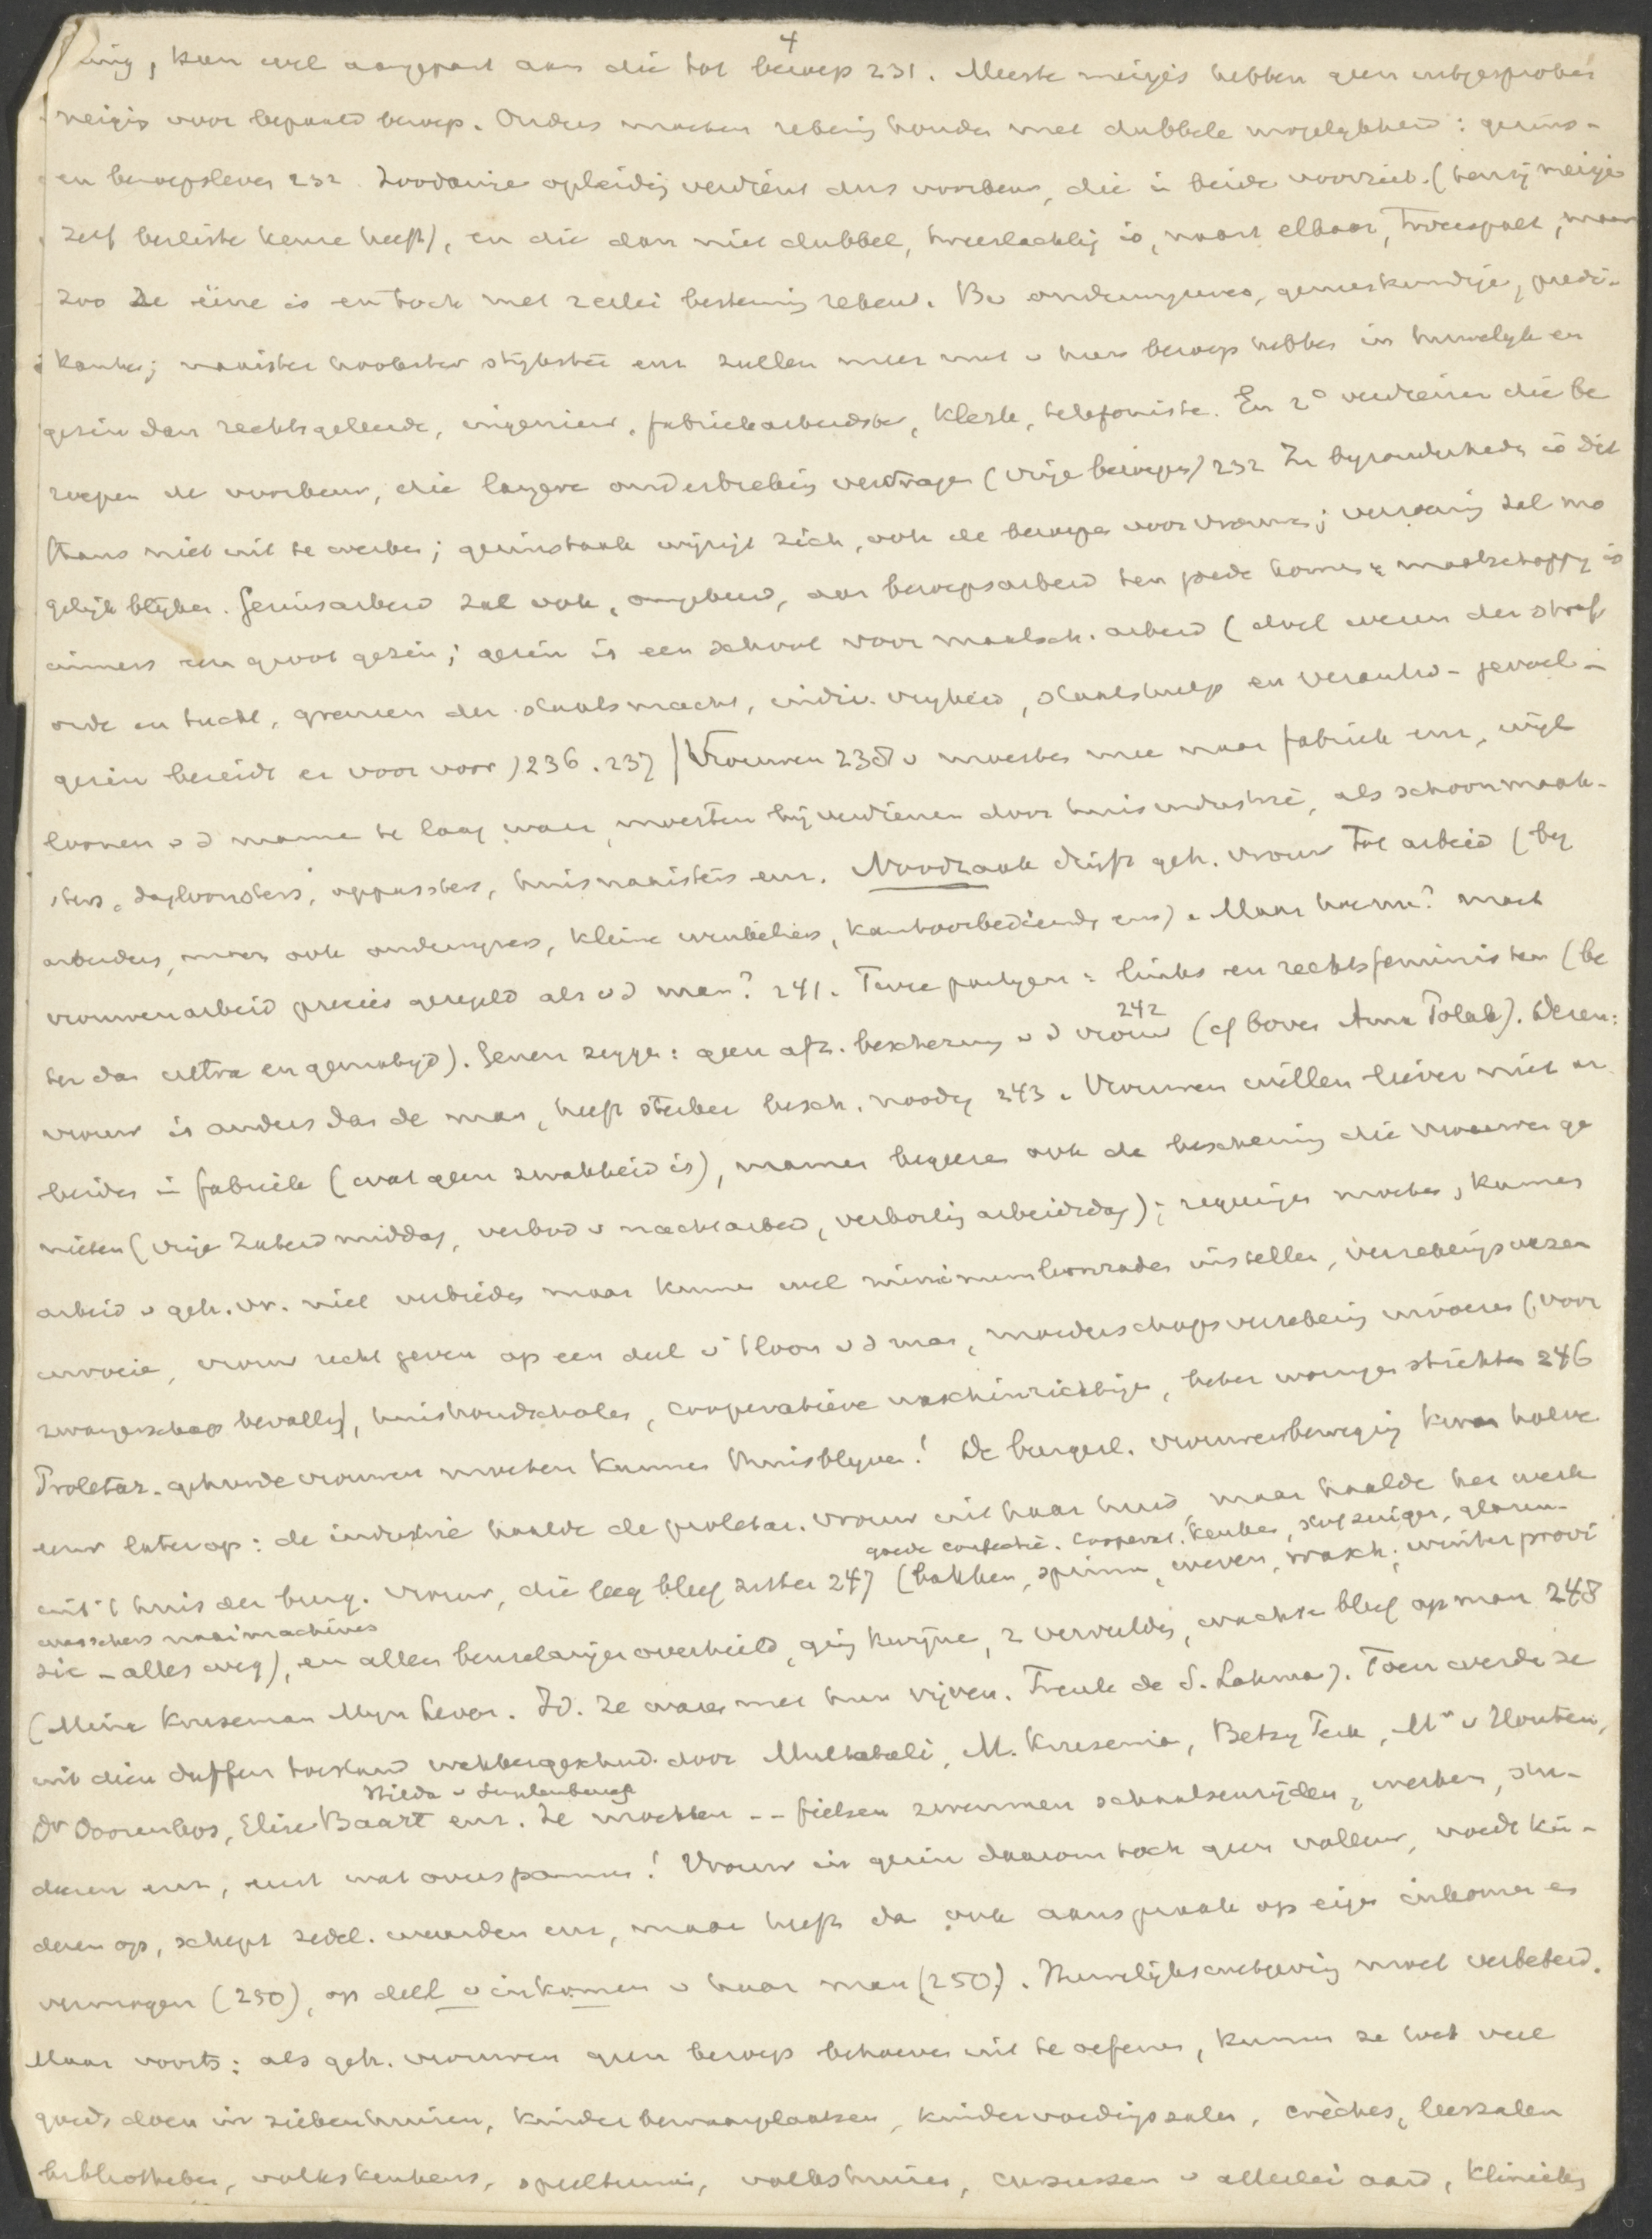 4
ding, kan wel aangepast aan die tot beroep 231. Meeste meisjes hebben geen uitgesproken
neiging voor bepaald beroep. Ouders moeten rekening houden met dubbele mogelykheid: gezins-
en beroepsleven 232. Zoodanige opleiding verdient dus voorkeur, die in beide voorziet (tenzij meisje
zelf besliste keuze heeft), en die dan niet dubbel, tweeslachtig is, naast elkaar, tweespalt, maar
zoo ze ééne is en toch met zeker bestemming rekent. Bv onderwyzeres, geneeskundige, predi-
kante; naaister kookster strijkster enz zullen meer nut v hun beroep hebben in huwelyk en
gezin dan rechtsgeleerde, ingenieur, fabrieksarbeidster, klerk, telefoniste. En 2° verdienen die be
roepen de voorkeur, die langere onderbreking verdragen (vrije beroepen) 232 In byzonderheden is dit
thans niet uit te werken; gezinstaak wijzigt zich, ook de beroepen voor vrouwen; verzoening zal mo
gelijk blyken. Gezinsarbeid zal ook, omgekeerd, aan beroepsarbeid ten goede komen: maatschappy is
immers een groot gezin; gezin is een school voor maatsch. arbeid (doel wezen der straf
orde en tucht, grenzen der staatsmacht, indiv. vryheid, staatshulp en verantw-gevoel –
gezin bereidt er voor voor) 236. 237 | Vrouwen 238 v moesten mee naar fabriek enz, wijl
loonen v d manne te laag waren, moesten bij verdienen door huisindustrie, als schoonmaak-
sters, dagloonsters, oppassters, huisnaaisters enz. Noodzaak drijft geh. vrouw tot arbeid (by
arbeiders, maar ook onderwyzers, kleine winkeliers, kantoorbedienden enz). Maar hoe nu? moet
vrouwenarbeid precies geregeld als v d man? 241. Twee partyen: links en rechtsfeministen (be
242
ter dan ultra en gematigd). Genen zeggen: geen afz. bescherming v d vrouw (cf boven Anna Polak). Dezen:
vrouw is anders dan de man, heeft sterker besch. noodig 243. Vrouwen willen liever niet ar
beiden in fabriek (wat geen zwakheid is), mannen begeeren ook de bescherming die vrouwen ge
nieten (vrije Zaterdmiddag, verbod v nachtarbeid, verkorting arbeidsdag); regeeringen moeten, kunnen
arbeid v geh. vr. niet verbieden maar kunnen wel minimumloonraden instellen, verzekeringswezen
invoeren, vrouw recht geven op een deel v 't loon v d man, moederschapsverzekering invoeren (voor
zwangerschap bevalling), huishoudscholen, cooperatieve waschinrichtingen, beter woningen stichten 246
Proletar. gehuwde vrouwen moeten kunnen thuisblyven! De burgerl. vrouwenbeweging kwam halve
eeuw later op: de industrie haalde de proletar. vrouw uit haar huis, maar haalde het werk
goede confectie. Cooperat. keuken, stofzuiger, glazen-
uit 't huis der burg. vrouw, die leeg bleef zitten 247 (bakken, spinnen, weven, wasch, winter provi
wasschers naaimachines
sie – alles weg), en alleen beuzelarijen overhield, ging kwijnen, z vervelden, wachtte bleef op man 248
(Mina Kruseman Mijn leven. Id. Ze waren met hun vijven. Freule de S. Lohman). Toen werden ze
uit dien duffen toestand wakkergeschud door Multatuli, M. Kruseman, Betsy Perk, Mr v Houten,
Hilda v Suylenburg
Dr Doorenbos, Elise Baart enz. Ze mochten -- fietsen zwemmen schaatsenrijden, werken, stu-
deeren enz, eerst wat overspannen! Vrouw in gezin daarom toch geen nulleur, voedt kin-
deren op, schept zedel. waarden enz, maar heeft dan ook aanspraak op eigen inkomen en
vermogen (250), op deel v inkomen v haar man (250). Huwelijkswetgeving moet verbeterd.
Maar voorts: als geh. vrouwen geen beroep behoeven uit te oefenen, kunnen ze toch veel
goeds doen in ziekenhuizen, kinderbewaarplaatsen, kindervoedingszalen, crèches, leeszalen
bibliotheken, volkskeukens, speeltuinen, volkshuizen, cursussen v allerlei aard, klinieken